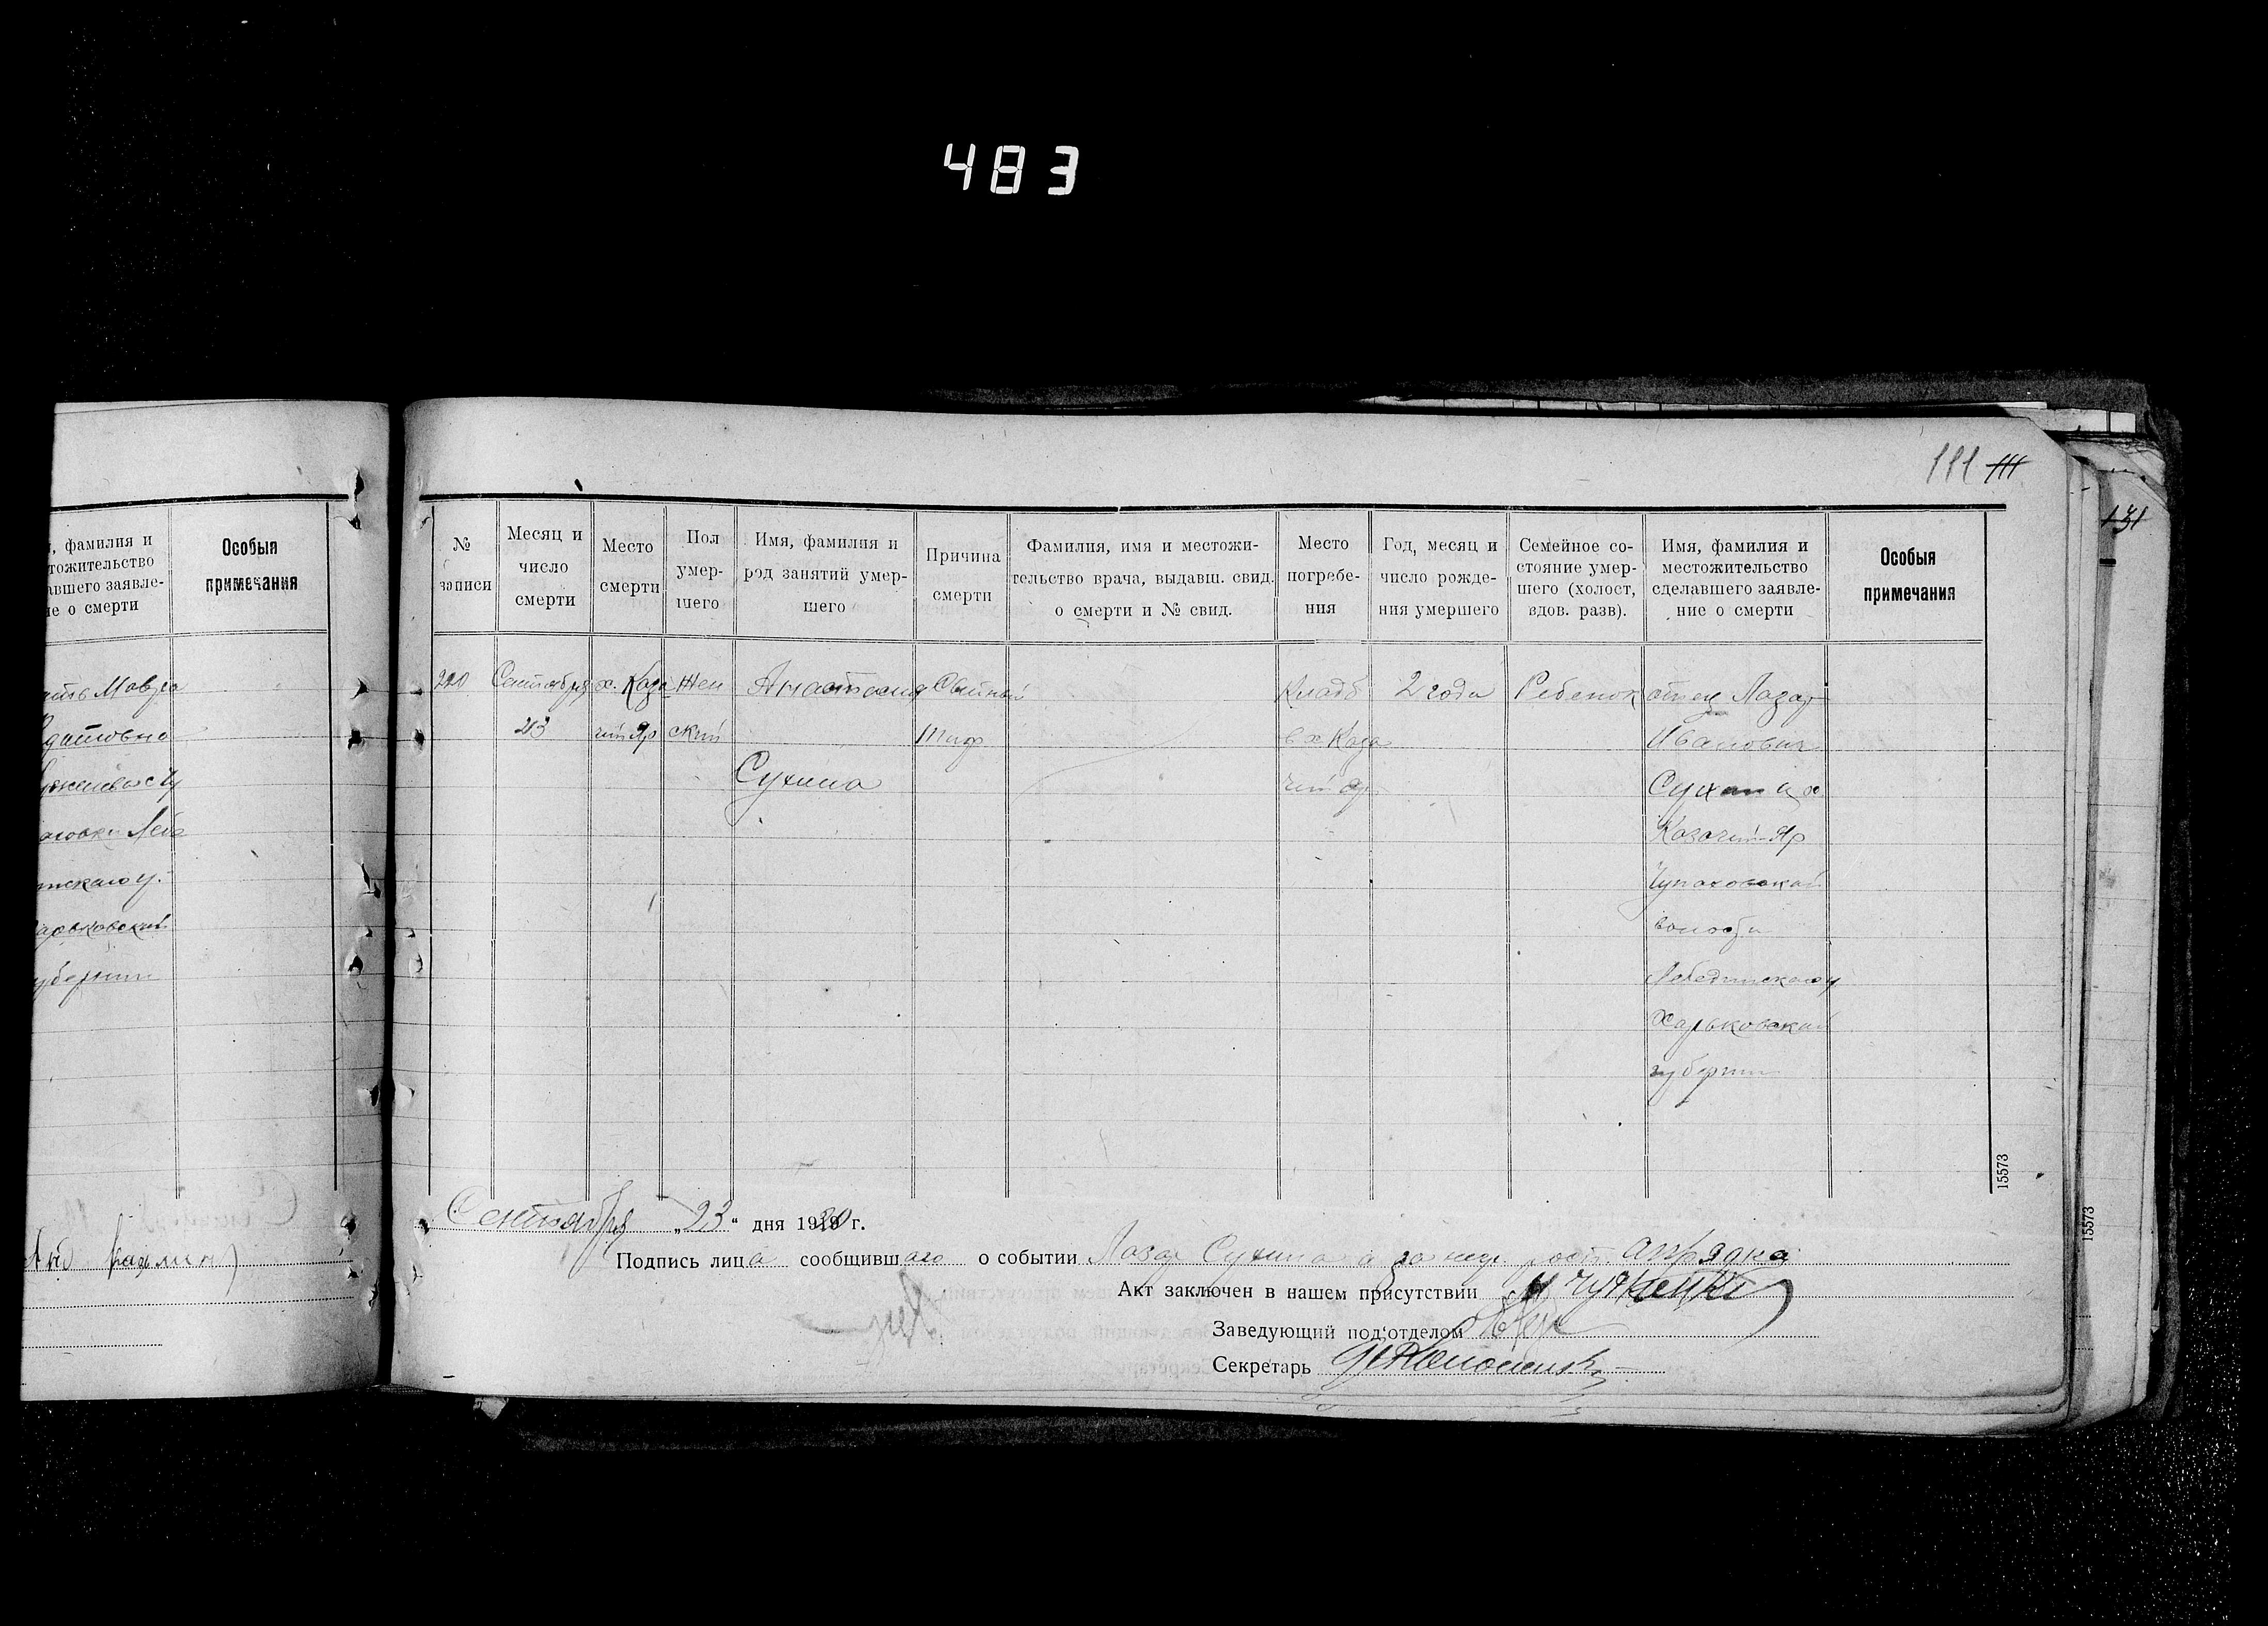 483
111 111
131
, фамилия и
тожительство
авшего заявле-
ие о смерти
Особыя
примечания
Мавра
Харьковской
губернии
№
записи
Месяц и
число
смерти
Место
смерти
Пол
умер-
шего
Имя, фамилия и
род занятий умер-
шего
Причина
смерти
Фамилия, имя и местожи-
тельство врача, выдавш. свид.
о смерти и № свид.
Место
погребе-
ния
Год, месяц и
число рожде-
ния умершего
Семейное со-
стояние умер-
шего (холост,
вдов. разв).
Имя, фамилия и
местожительство
сделавшего заявле-
ние о смерти
Особыя
примечания
220
Сентября
23
х. Каза
чий Яр
Жен
ский
Анастасия
Сухина
Сыпной
тиф
Кладб
в х Каза
чий Яр
2 года
Ребенок
отец Лазар
Иванович
Сухин х
Казачий-Яр
Чупаховской
волости
Лебединского у
Харьковской
губернии
15573
15573
Сентября „23“ дня 1920 г.
Подпись лица сообщившаго о событии Лазар Сухина а за нег
Акт заключен в нашем присутствии
Заведующий под'отделом
Секретарь